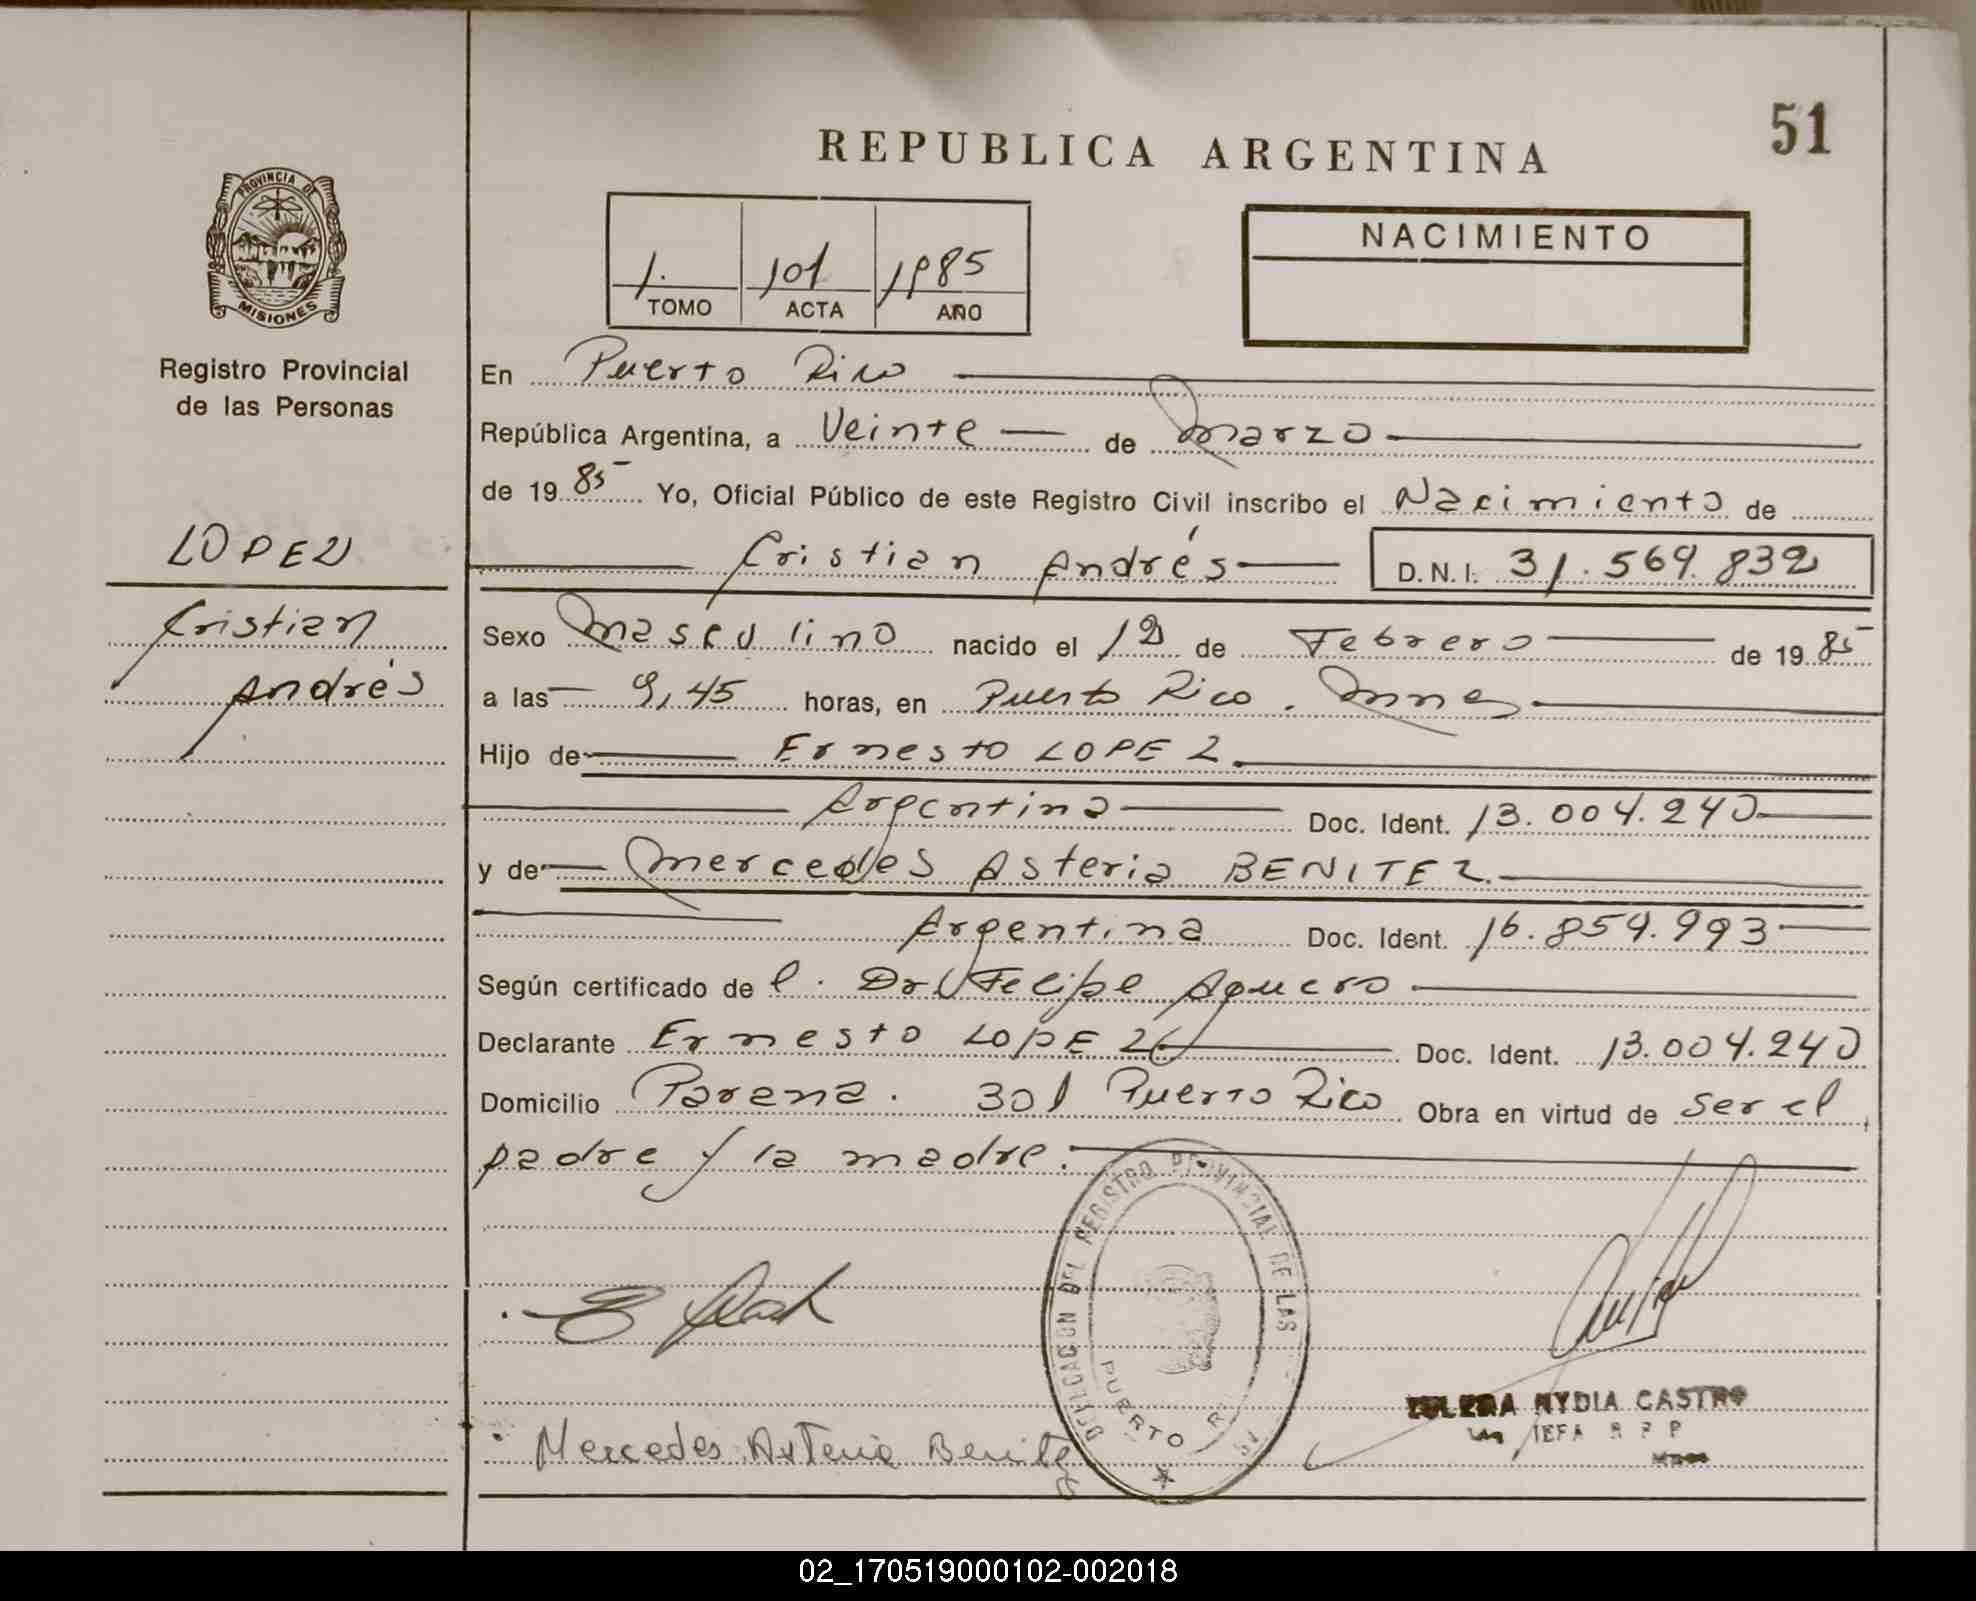 REPUBLICA ARGENTINA
51
PROVINCIA DE
MISIONES
Registro Provincial
de las Personas
LOPEZ
Cristian
Andrés
1. 101 1985
TOMO ACTA AÑO
NACIMIENTO
En Puerto Rico
República Argentina, a Veinte de Marzo
de 1985 Yo, Oficial Público de este Registro Civil inscribo el Nacimiento de
Cristian Andrés D.N.I. 31.569.832
Sexo Masculino nacido el 12 de Febrero de 1985
a las 9,45 horas, en Puerto Rico. Mnes
Hijo de Ernesto LOPEZ.
Argentina Doc. Ident. 13.004.240
y de Mercedes Asteria BENITEZ.
Argentina Doc. Ident. 16.859.993
Según certificado de l. Dr. Felipe Aguero
Declarante Ernesto LOPEZ Doc. Ident. 13.004.240
Domicilio Parana. 301 Puerto Rico Obra en virtud de ser el
padre y la madre.
DELEGACION DEL REGISTRO PROVINCIAL DE LAS
PUERTO R
NYDIA CASTRO
JEFA R P P
Mercedes Asteria Benitez
02_170519000102-002018